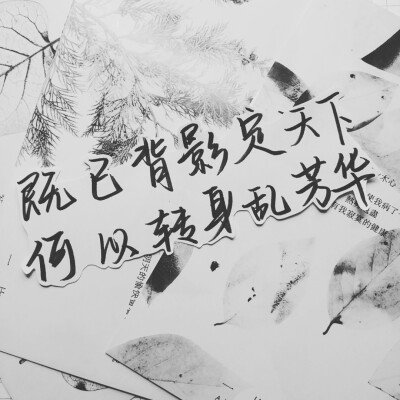 既已背影定天下
何以转身乱芳华